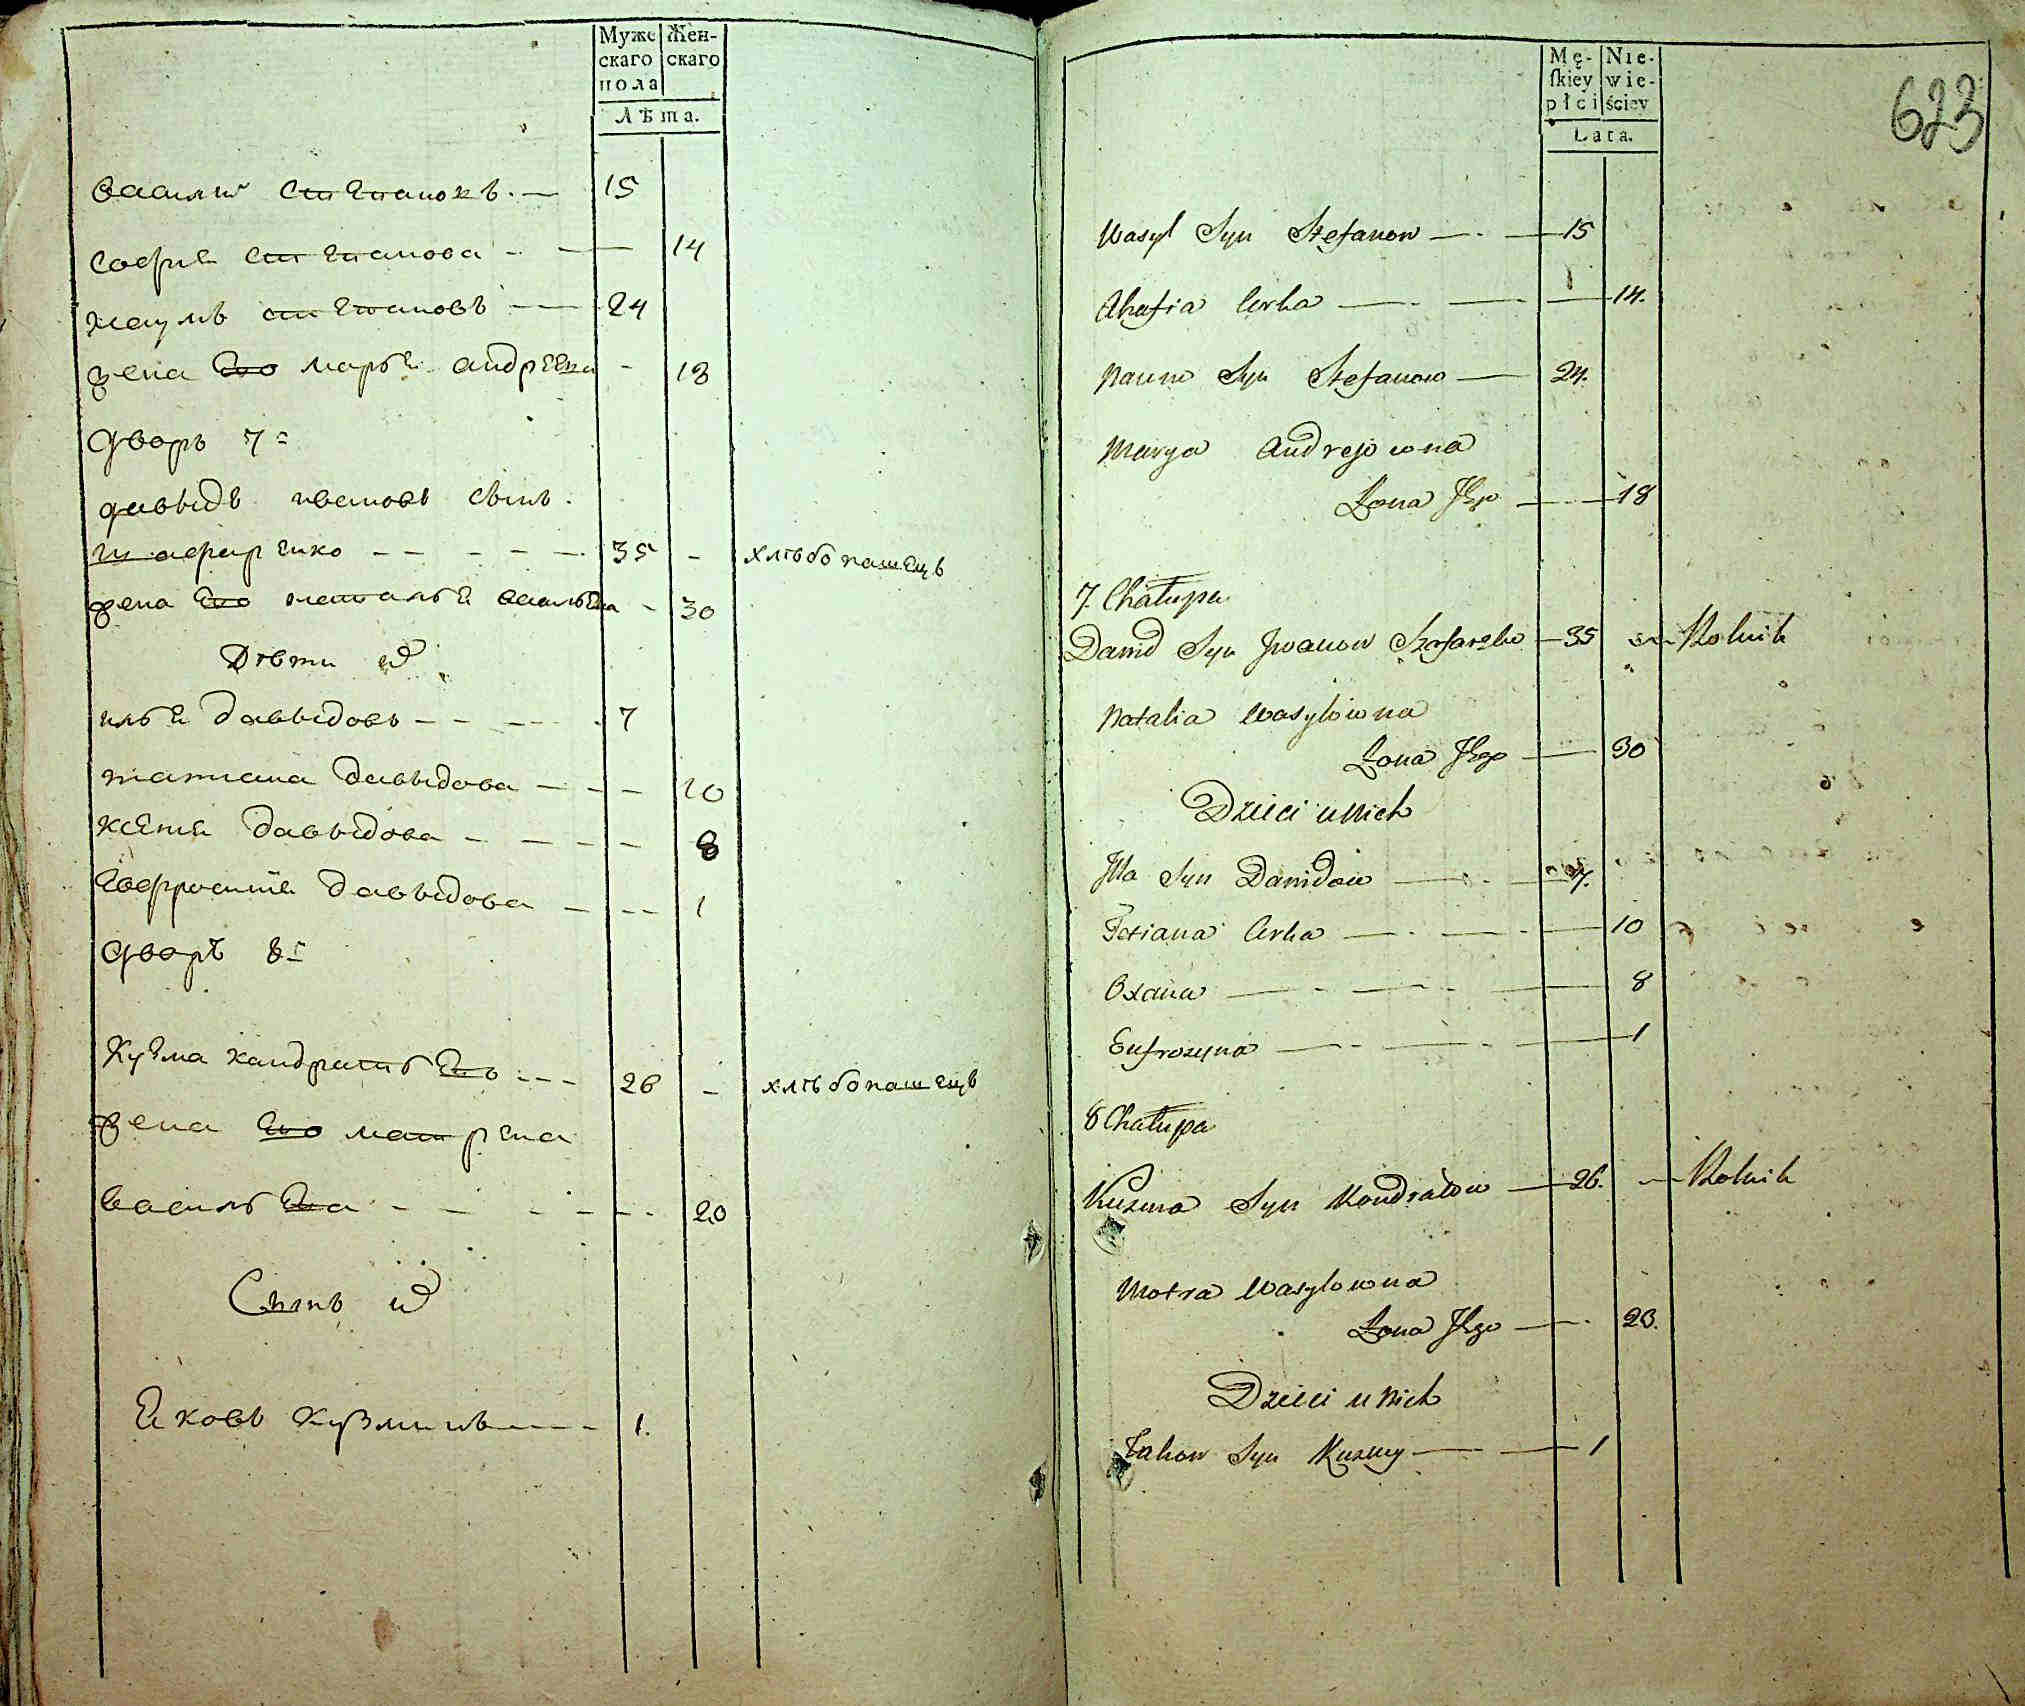 Муже
скаго
пола
Жен-
скаго
Лѣта.
василий степановъ. — 15
софия степанова — 14
наумъ степановъ — 24
жена его марья андреева - 18
дворъ 7й
давыдъ ивановъ сынъ
шафаренко — 35 - хлѣбопашецъ
жена его наталья васильева - 30
Дѣти их
илья давыдовъ — 7
татиана давыдова — 10
ксеня давыдова — 8
евфросиния давыдова — 1
дворъ 8й
Кузма кандратьев — 26 - хлѣбопашецъ
жена его матрена
васильева — 20
Сынъ их
яковъ кузминъ — 1.
Mę-
ſkiey
płci
Nie-
wie-
ściey
Lata.
623
Wasyl Syn Stefanow — 15
Ahafia Corka — 14.
Naum Syn Stefanow — 24.
Marya Andrejowna
Zona Jego — 18
7. Chałupa
Dawid Syn Jwanow Szafarenko — 35 — Rolnik
Natalia Wasylowna
Zona Jego — 30
Dzieci u Nich
Jlla Syn Dawidow — 7.
Tetiana Corka — 10
Oxana — 8
Eufrozyna — 1
8 Chałupa
Kuzma Syn Kondratow — 26. — Rolnik
Motra Wasylowna
Zona Jego — 20.
Dzieci u Nich
Jakow Syn Kuzmy — 1